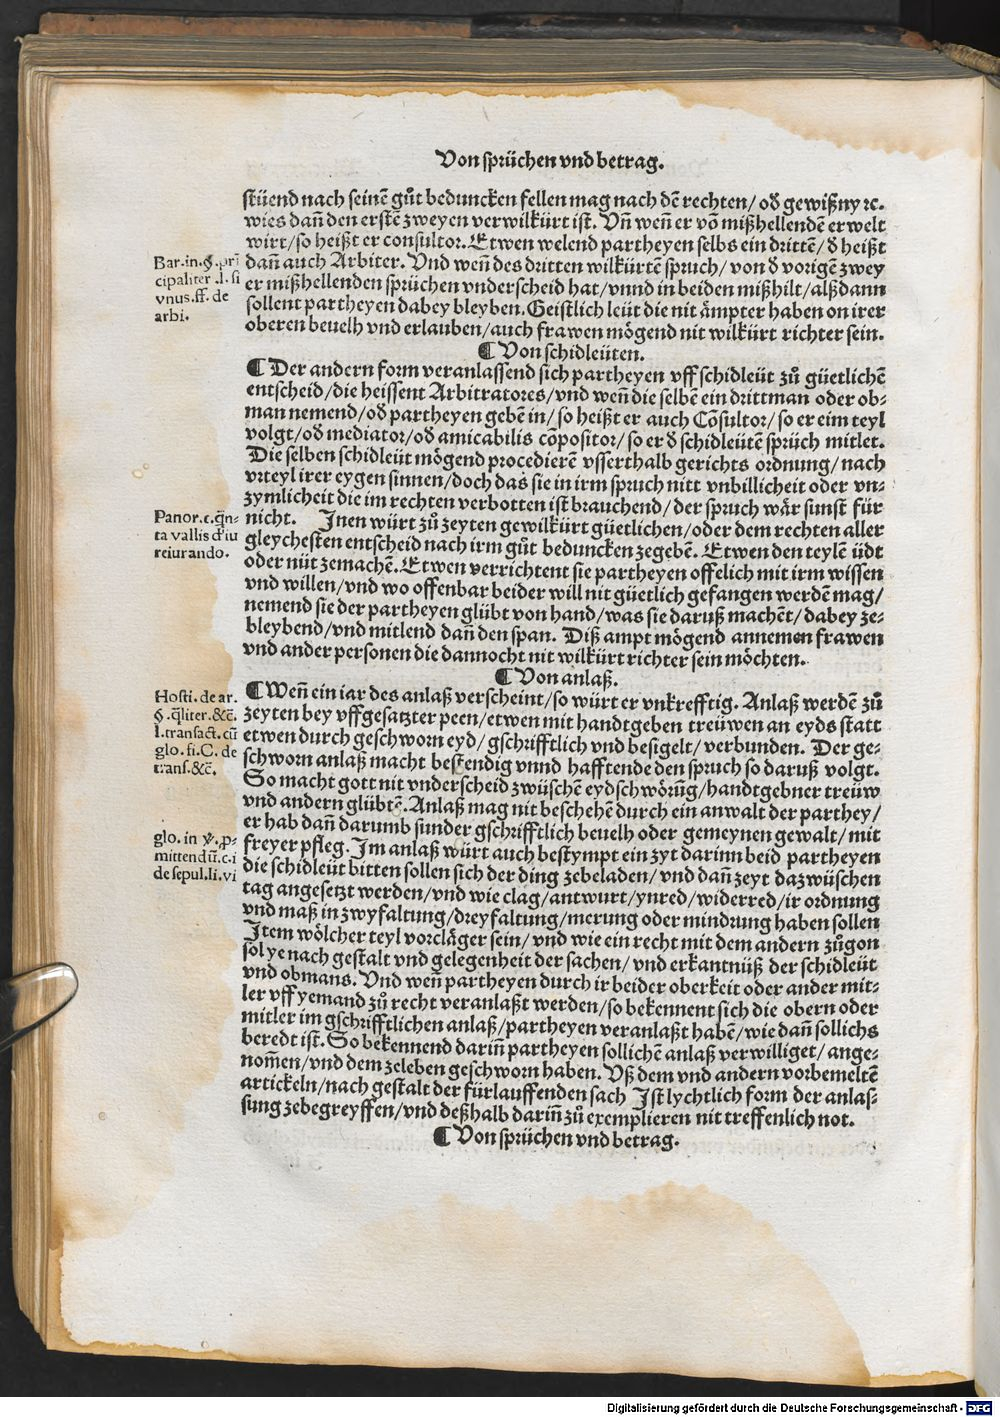 Von sprüchen vnd betrag.
stüend nach seinē gůt beduncken fellen mag nach dē rechten/ od gewißny ꝛc.
wies dañ den erstē zweyen verwilkürt ist. Vñ weñ er võ mißhellendē erwelt
wirt/so heißt er consultor. Etwen welend partheyen selbs ein drittē/ d̕ heißt
dañ auch Arbiter. Vnd weñ des dritten wilkürtē spruch/ von d̕ vorigē zwey
er mißhellenden sprüchen vnderscheid hat/ vnnd in beiden mißhilt/ alßdann
sollent partheyen dabey bleyben. Geistlich leüt die nit ämpter haben on irer
oberen beuelh vnd erlauben/auch frawen mögend nit wilkürt richter sein.
Bar.in.§.prī
cipaliter .l. si
vnus.ff. de
arbi.
¶ Von schidleüten.
¶ Der andern form veranlassend sich partheyen vff schidleüt zů güetlichē
entscheid/die heissent Arbitratores/vnd weñ die selbē ein drittman oder ob⸗
man nemend/od̕ partheyen gebē in/ so heißt er auch Cōsultor/ so er eim teyl
volgt/od̕ mediator/od̕ amicabilis cōpositor/ so er d̕ schidleütē sprüch mitlet.
Die selben schidleüt mögend procedierē vsserthalb gerichts ordnung/ nach
vrteyl irer eygen sinnen/doch das sie in irm spruch nitt vnbillicheit oder vn⸗
zymlicheit die im rechten verbotten ist brauchend/ der spruch wär sunst für
nicht. Inen würt zů zeyten gewilkürt güetlichen/oder dem rechten aller
gleychesten entscheid nach irm gůt beduncken zegebē. Etwen den teylē üdt
oder nüt zemachē. Etwen verrichtent sie partheyen offelich mit irm wissen
vnd willen/vnd wo offenbar beider will nit güetlich gefangen werdē mag/
nemend sie der partheyen glübt von hand/was sie daruß machēt/ dabey ze⸗
bleybend/vnd mitlend dañ den span. Diß ampt mögend annemen frawen
vnd ander personen die dannocht nit wilkürt richter sein möchten.
Panor.c.q̄n⸗
ta vallis d'iu
reiurando.
¶ Von anlaß.
¶ Weñ ein iar des anlaß verscheint/so würt er vnkrefftig. Anlaß werdē zů
zeyten bey vffgesatzter peen/etwen mit handtgeben treüwen an eyds statt
etwen durch geschworn eyd/ gschrifftlich vnd besigelt/ verbunden. Der ge⸗
schworn anlaß macht bestendig vnnd hafftende den spruch so daruß volgt.
So macht gott nit vnderscheid zwüschē eydschwörüg/handtgebner treüw
vnd andern glübtē. Anlaß mag nit beschehē durch ein anwalt der parthey/
er hab dañ darumb sunder gschrifftlich beuelh oder gemeynen gewalt/ mit
freyer pfleg. Im anlaß würt auch bestympt ein zyt darinn beid partheyen
die schidleüt bitten sollen sich der ding zebeladen/ vnd dañ zeyt dazwüschen
tag angesetzt werden/vnd wie clag/antwurt/ynred/widerred/ir ordnung
vnd maß in zwyfaltung/dreyfaltung/merung oder mindrung haben sollen
Item wölcher teyl vorcläger sein/ vnd wie ein recht mit dem andern zůgon
sol ye nach gestalt vnd gelegenheit der sachen/ vnd erkantnüß der schidleüt
vnd obmans. Vnd weñ partheyen durch ir beider oberkeit oder ander mit⸗
ler vff yemand zů recht veranlaßt werden/so bekennent sich die obern oder
mitler im gschrifftlichen anlaß/partheyen veranlaßt habē/wie dañ sollichs
beredt ist. So bekennend dariñ partheyen sollichē anlaß verwilliget/ ange⸗
nom̄en/vnd dem zeleben geschworn haben. Vß dem vnd andern vorbemeltē
artickeln/nach gestalt der fürlauffenden sach Ist lychtlich form der anlas⸗
sung zebegreyffen/vnd deßhalb dariñ zů exemplieren nit treffenlich not.
Hosti. de ar.
§.q̄liter.&c̄.
l.transact. cū
glo. fi. C. de
trans.&c̄.
glo. in ℣. ꝓ⸗
mittendū.c.i
de sepul.li.vi
¶ Von sprüchen vnd betrag.
Digitalisierung gefördert durch die Deutsche Forschungsgemeinschaft - DFG